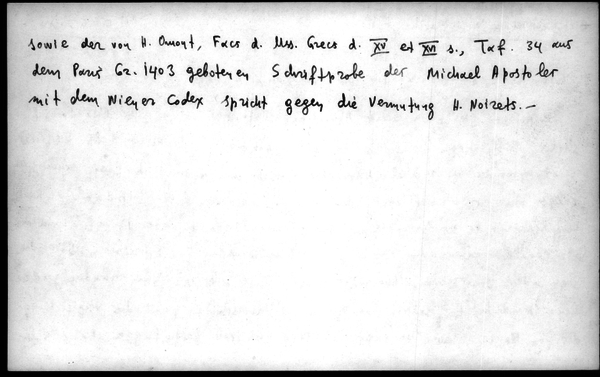 sowie der von H. Omont, Facs d. Mss. Grecs d. XV et XVI s., Taf. 34 aus
dem Paris Gr. 1403 gebotenen Schriftprobe des Michael Apostoles
mit dem Wiener Codex spricht gegen die Vermutung H. Noirets. –